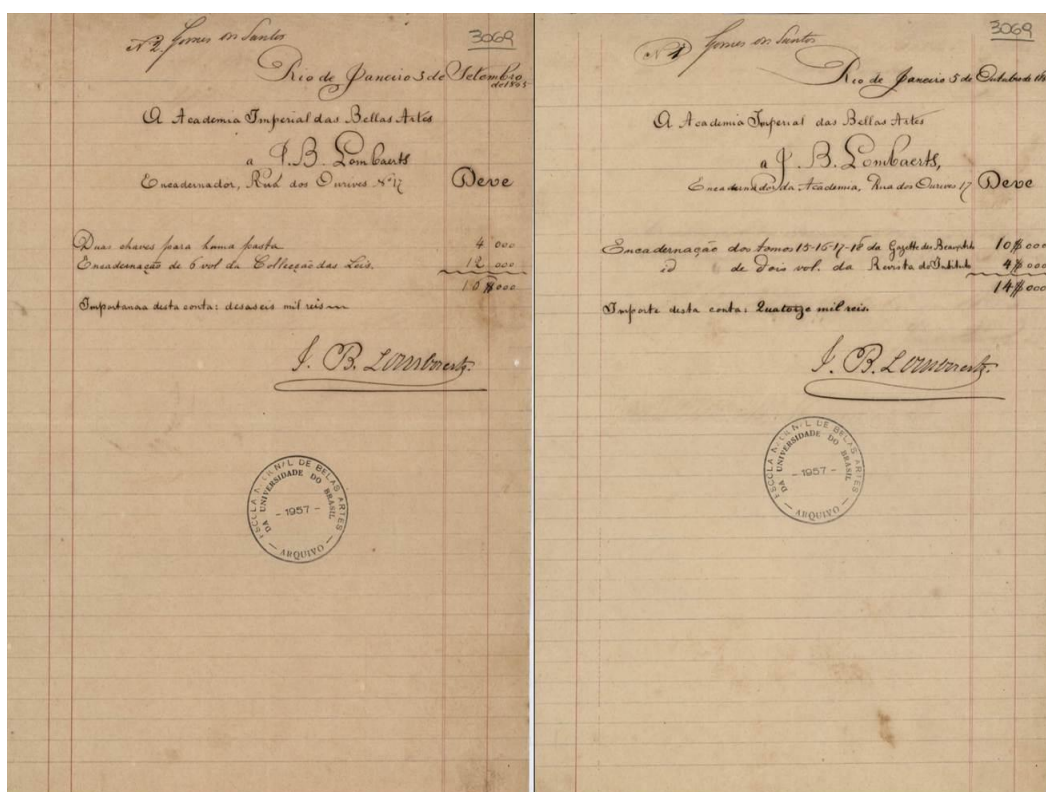 N 2 Gomes dos Santos
3069
Rio de Janeiro 5 de Setembro
de 1865
A Academia Imperial das Bellas Artes
a J. B. Lombaerts
Encadernador, Rua dos Ourives Nº 17 Deve
Duas chaves para huma pasta 4 000
Encadernação de 6 vol da Collecção das Leis. 12 000
desta conta: desaseis mil reis
J. B. Lombaerts
ESCOLA NACIONAL DE BELAS ARTES
DA UNIVERSIDADE DO BRASIL
- 1957 -
- ARQUIVO -
N 1 Gomes dos Santos
3069
Rio de Janeiro 5 de Outubro de
A Academia Imperial das Bellas Artes
a J. B. Lombaerts,
Encadernador da Academia, Rua dos Ourives 17 Deve
Encadernação dos tomos 15-16-17-18 da Gazette des Beaux 10$000
id de Dois vol. da Revista do Instituto 4$000
14$000
Importe desta conta: Quatorze mil reis.
J. B. Lombaerts.
ESCOLA NACIONAL DE BELAS ARTES
DA UNIVERSIDADE DO BRASIL
- 1957 -
- ARQUIVO -